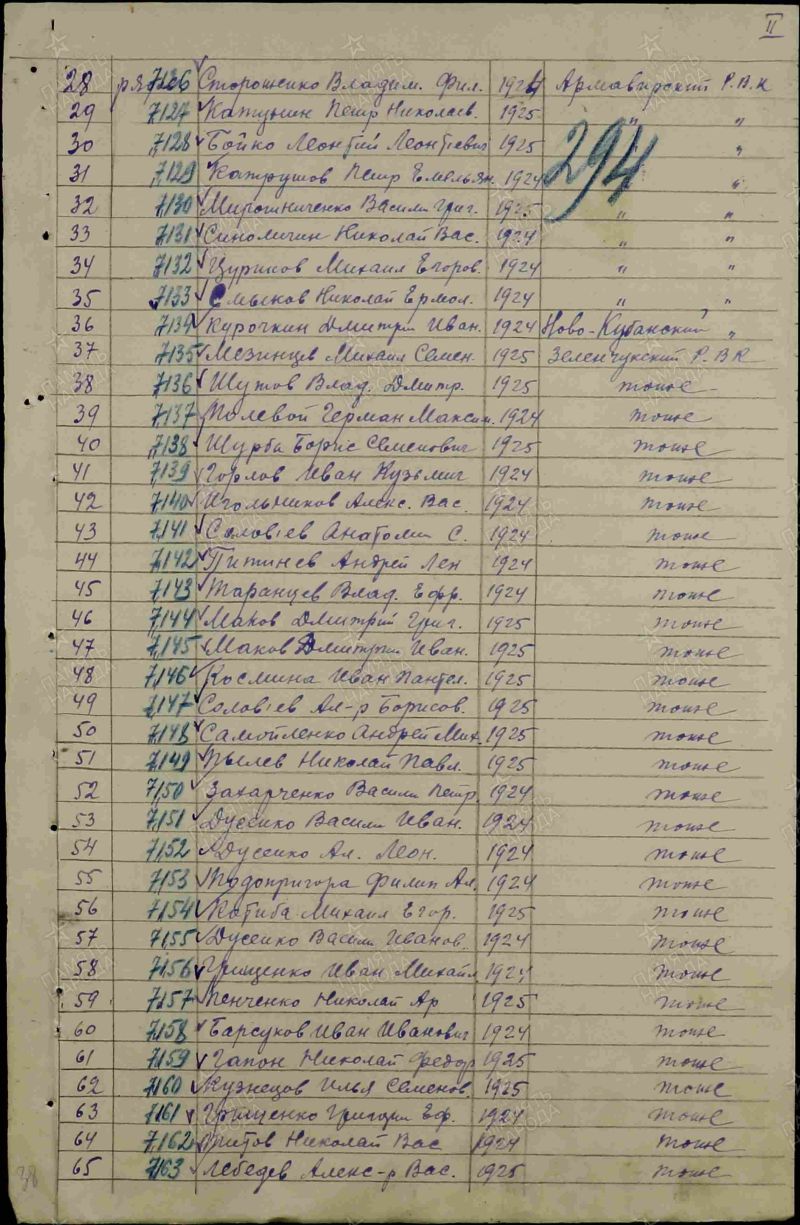 II
28 ряд 7126 Стороженко Владим. Фил. 1924 Армавирский Р.В.К
29 7127 Катунин Петр Николаев. 1925 " "
294
30 7128 Бойко Леонтий Леонтиевич 1925 "
31 7129 Катрушов Петр Емельян. 1924 "
32 7130 Мирошниченко Васили Григ. 1925 " "
33 7131 Синоличин Николай Вас. 1924 " "
34 7132 Цуриков Михаил Егоров. 1924 " "
35 7133 Смыков Николай Ермол. 1924 " "
36 7134 Курочкин Дмитрий Иван. 1924 Ново-Кубанский "
37 7135 Мезинцев Михаил Семен. 1925 Зеленчукский Р.В.К
38 7136 Шутов Влад. Дмитр. 1925 тоже
39 7137 Полевой Герман Максим. 1924 тоже
40 7138 Шурба Борис Семенович 1925 тоже
41 7139 Горлов Иван Кузьмич 1924 тоже
42 7140 Игольников Алекс. Вас. 1924 тоже
43 7141 Соловiев Анатолий С. 1924 тоже
44 7142 Питинев Андрей Лен 1924 тоже
45 7143 Таранцев Влад. Ефр. 1924 тоже
46 7144 Маков Дмитрий Григ. 1925 тоже
47 7145 Маков Дмитрий Иван. 1925 тоже
48 7146 Космина Иван Пантел. 1925 тоже
49 7147 Соловiев Ал-р Борисов. 1925 тоже
50 7148 Самойленко Андрей Мих. 1925 тоже
51 7149 Пылев Николай Павл. 1925 тоже
52 7150 Захарченко Васили Петр. 1924 тоже
53 7151 Дусенко Васили Иван. 1924 тоже
54 7152 Дусенко Ал. Леон. 1924 тоже
55 7153 Подопригора Филип Ал. 1924 тоже
56 7154 Котиба Михаил Егор. 1925 тоже
57 7155 Дусенко Васили Иванов. 1924 тоже
58 7156 Грищенко Иван Михайл 1924 тоже
59 7157 Пенченко Николай Ар 1925 тоже
60 7158 Барсуков Иван Иванович 1924 тоже
61 7159 Гапон Николай Федор 1925 тоже
62 7160 Кузнецов Илья Семенов. 1925 тоже
63 7161 Грищенко Григори Еф. 1924 тоже
64 7162 Титов Николай Вас 1924 тоже
65 7163 Лебедев Алекс-р Вас. 1925 тоже
38